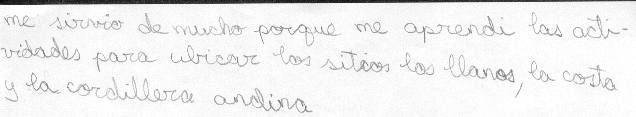 me sirvio de mucho porque me aprendi las acti-
vidades para ubicar los sitios los llanos, la costa
y la cordillera andina